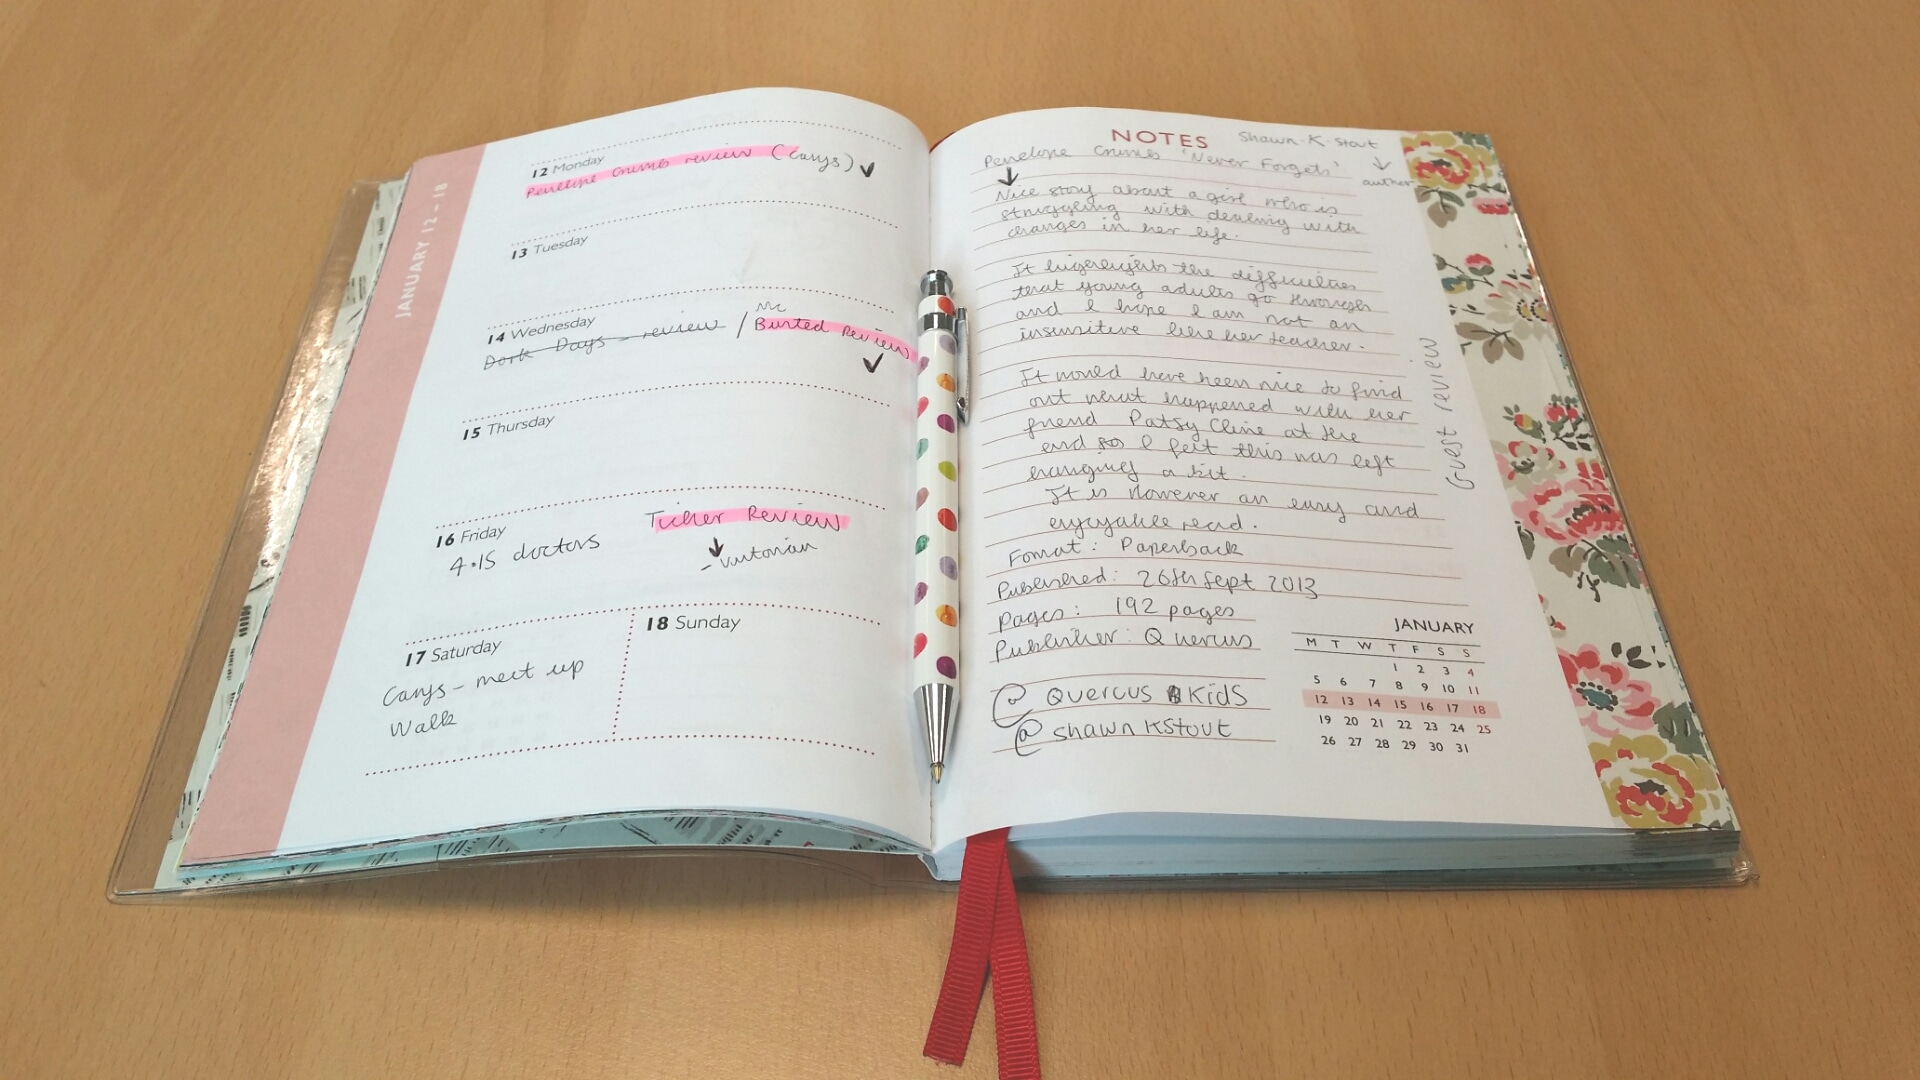 JANUARY 12 - 18
12 Monday
Penelope Crumb review (Carys)
13 Tuesday
14 Wednesday
me
Dork Days - review / Busted Review
15 Thursday
16 Friday
4.15 doctors
Ticker Review
- Victorian
17 Saturday
Carys - meet up
Walk
18 Sunday
NOTES
Shawn.K.Stout
author
Penelope Crumb 'Never Forgets'
Nice story about a girl who is
struggling with dealing with
changes in her life.
It highlights the difficulties
that young adults go through
and I hope I am not an
insensitive like her teacher.
It would have been nice to find
out what happened with her
friend Patsy Cline at the
end so I felt this was left
hanging a bit.
It is however an easy and
enjoyable read.
Format: Paperback
Published: 26th Sept 2013
Pages: 192 pages
Publisher: Quercus
@ Quercus Kids
@ Shawn KStout
Guest review
JANUARY
M T W T F S S
1 2 3 4
5 6 7 8 9 10 11
12 13 14 15 16 17 18
19 20 21 22 23 24 25
26 27 28 29 30 31